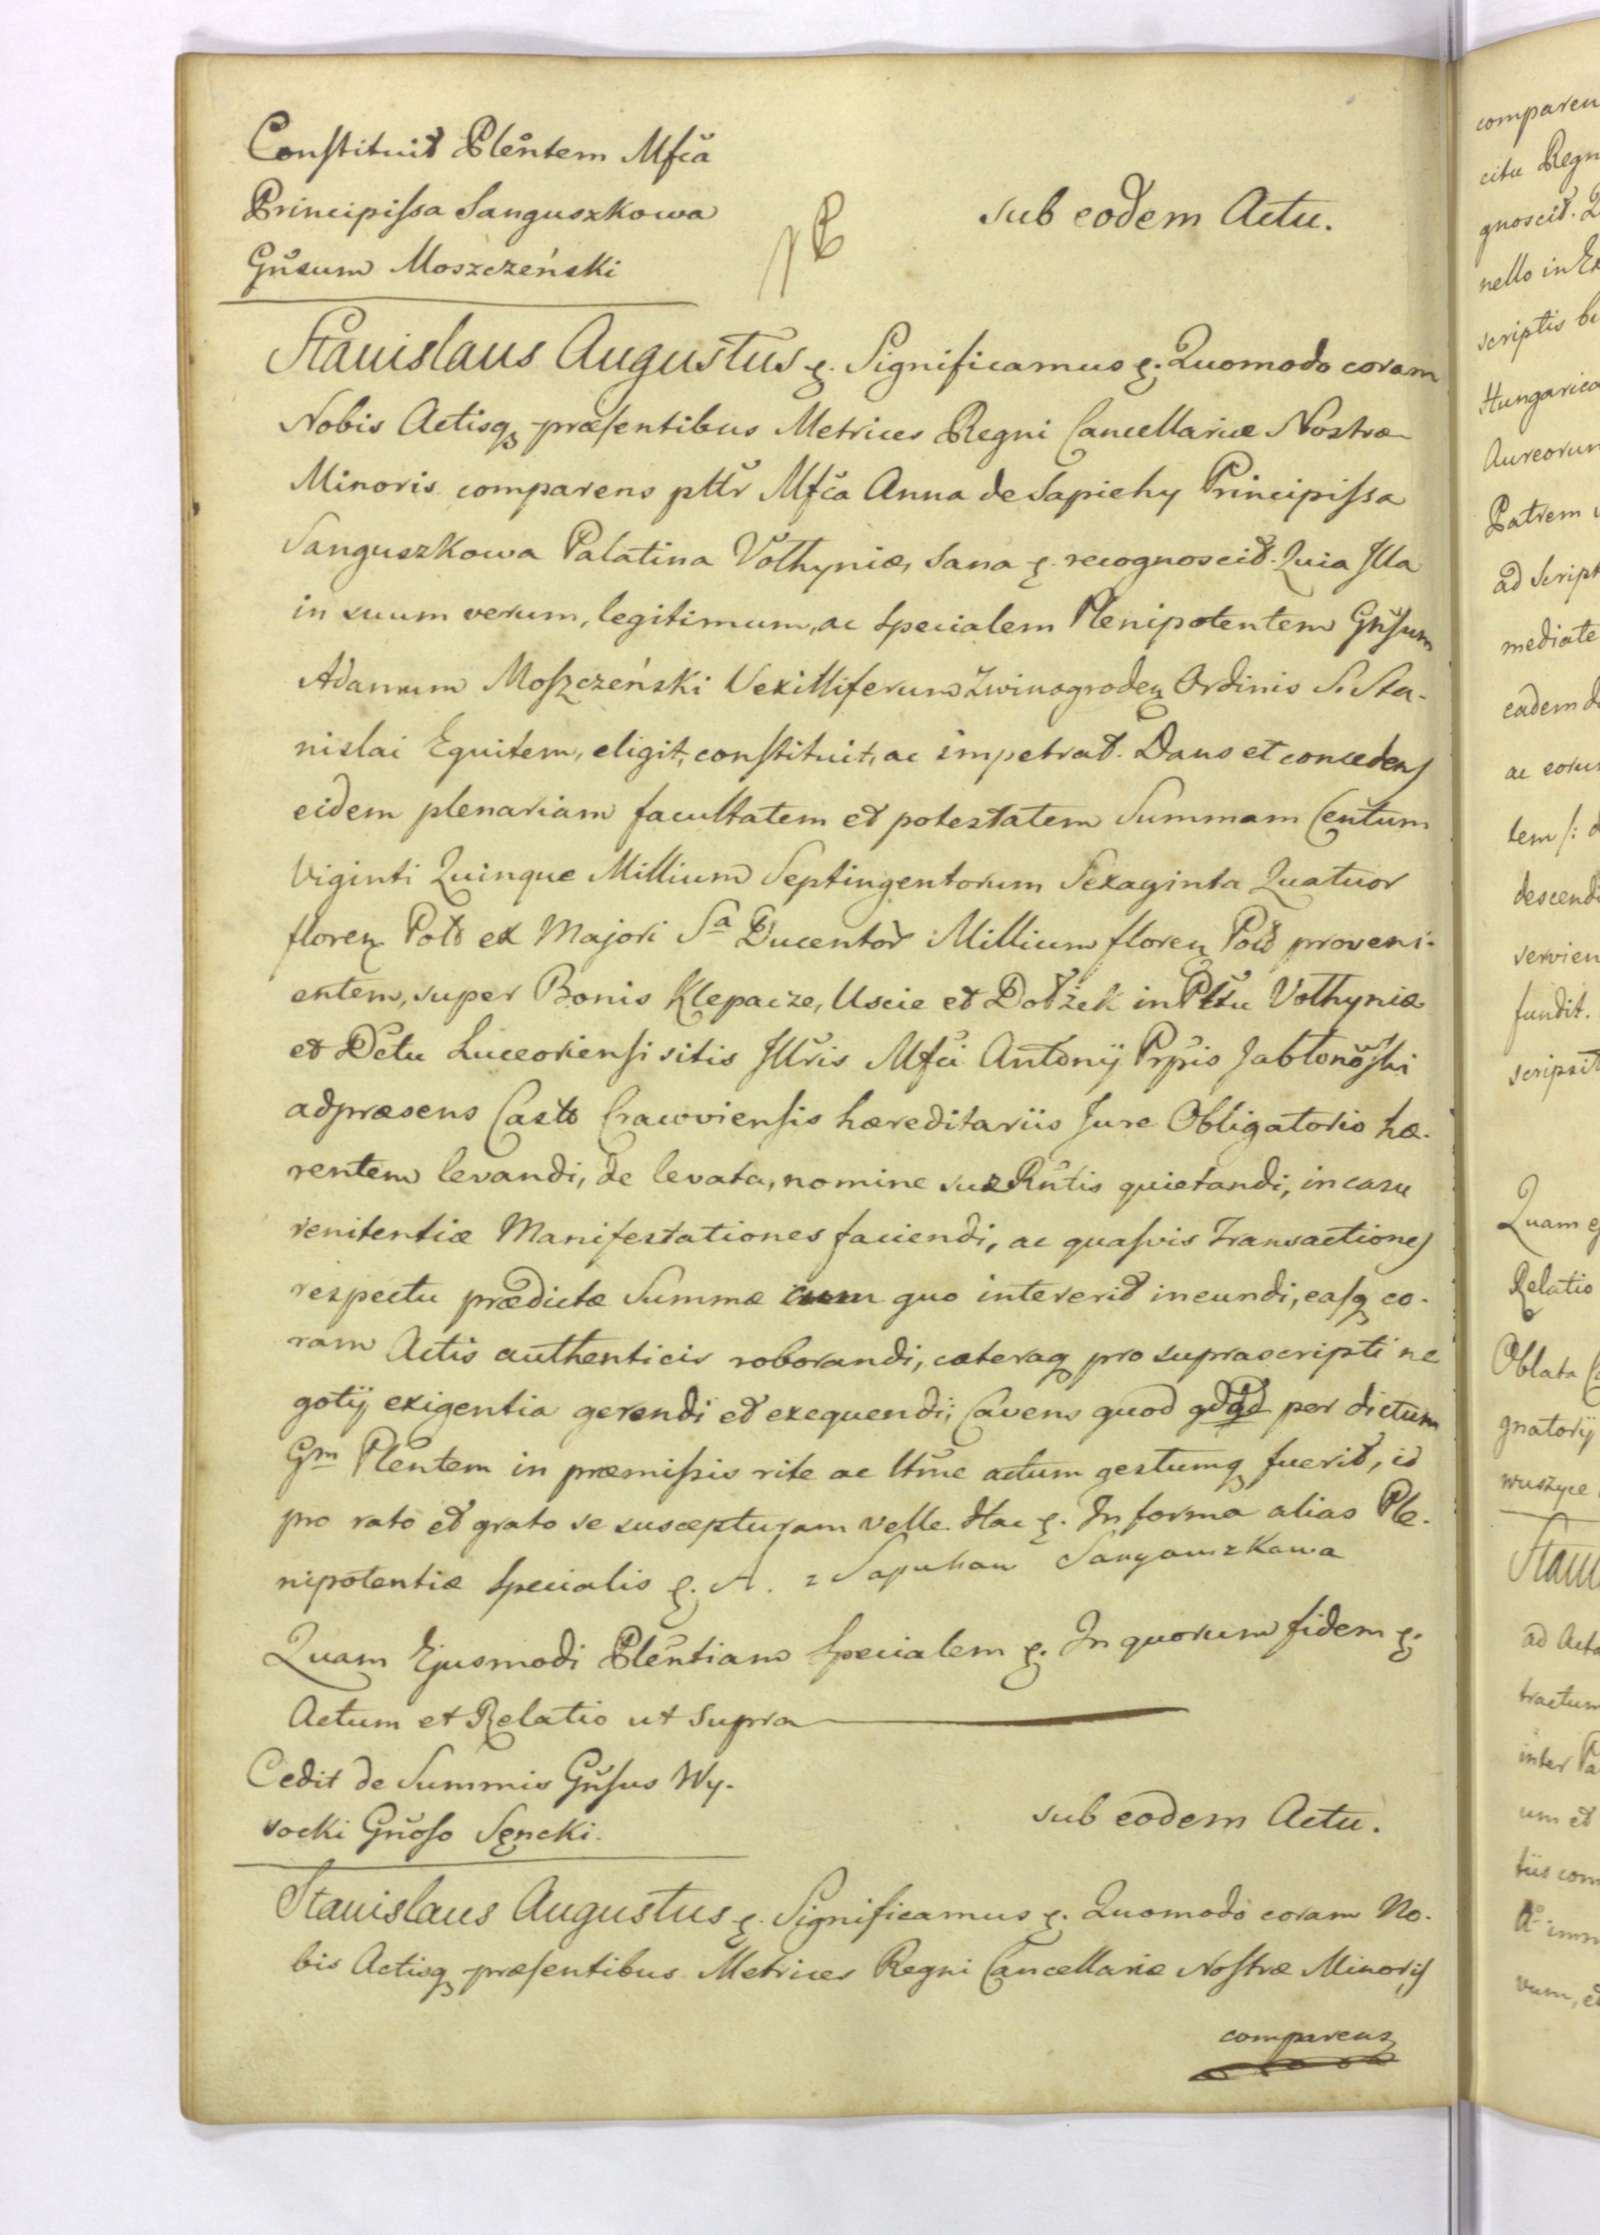 Constituit Plentem Mfca
Principissa Sanguszkowa
Gnsum Moszczeński
sub eodem Actu.
Stanislaus Augustus &. Significamus &. Quomodo coram
Nobis Actisq præsentibus Metrices Regni Cancellariæ Nostræ
Minoris comparens pttr Mfca Anna de Sapiehy Principissa
Sanguszkowa Palatina Volhyniæ, Sana &. recognoscit. Quia Illa
in suum verum, legitimum, ac specialem Plenipotentem Gnsum
Adamum Moszczeński Vexilliferum Zwinogroden Ordinis S. Sta-
nislai Equitem, eligit, constituit, ac impetrat. Dans et concedens
eidem plenariam facultatem et potestatem Summam Centum
Viginti Quinque Millium Septingentorum Sexaginta Quatuor
floren Pol ex Majori Sa Ducentor Millium floren Pol proveni-
entem, super Bonis Klepacze, Uscie et Dołżek in Pttu Volhyniæ
et Dctu Luceoriensi sitis Illris Mfci Antonij Prpis Jabłonoski
adpræsens Castt Cracoviensis hæreditariis Jure Obligatorio hæ-
rentem levandi, de levata, nomine suæ Rntis quietandi, in casu
renitentiæ Manifestationes faciendi, ac quasvis Transactiones
respectu prædictæ Summæ cum quo intererit ineundi, easq co-
ram Actis authenticis roborandi, cæteraq pro suprascripti ne
gotij exigentia gerendi et exequendi; Cavens quod qdqd per dictum
Gm Plentem in præmissis rite ac ltme actum gestumq fuerit, id
pro rato et grato se suscepturam velle. Hac &. In forma alias Ple-
nipotentiæ specialis &. A. z Sapiehow Sanguszkowa
Quam Ejusmodi Plentiam specialem &. In quorum fidem &.
Actum et Relatio ut supra
Cedit de Summis Gnsus Wy-
socki Gnoso Sęncki.
sub eodem Actu.
Stanislaus Augustus &. Significamus &. Quomodo coram No-
bis Actisq præsentibus Metrices Regni Cancellariæ Nostræ Minoris
comparens
comparen
citu Regn
gnoscit. Q
nello in Ex
scriptis
Hungarica
Aureorum
Patrem
ad Script
mediate
eadem d
ac eoru
descendi
servien
fundit.
scripsit
Quam ej
Relatio
Oblata
gnatorij
Stani
ad Acta
tractum
inter Pa
um et
tiis com
vum, et